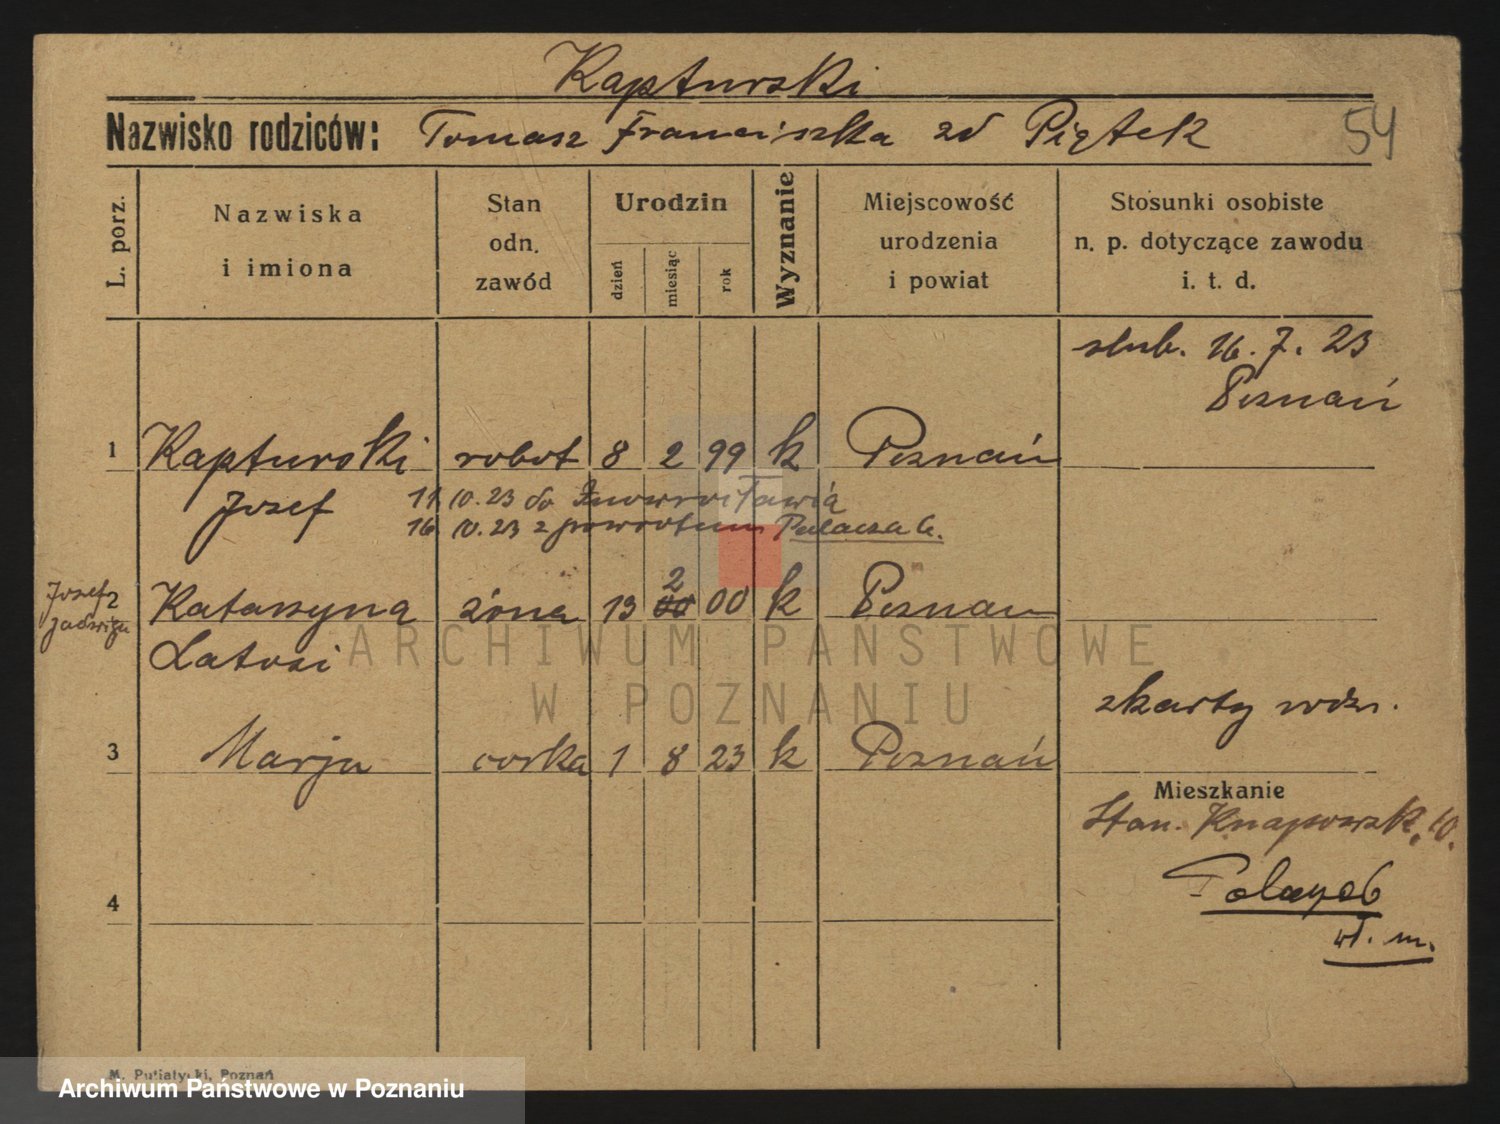 Kapturski
Nazwisko rodziców: Tomasz Franciszka zd Piątek 54
L. porz.
Nazwiska
i imiona
Stan
odn.
zawód
Urodzin
dzień
miesiąc
rok
Wyznanie
Miejscowość
urodzenia
i powiat
Stosunki osobiste
n. p. dotyczące zawodu
i. t. d.
slub. 16. 7. 23
Poznań
1 Kapturski robot 8 2 99 k Poznań
Jozef 11. 10. 23 do Inowrocławia
16. 10. 23 z powrotem Palacza 6.
Jozef
Jadwiga
2 Katarzyna żona 13 2 00 00 k Poznań
Latosi
ARCHIWUM PAŃSTWOWE
W POZNANIU
z karty
3 Marja corka 1 8 23 k Poznań
Mieszkanie
Stan. Knapowsk. 10.
4
wł. m.
M. Putiatycki, Poznań
Archiwum Państwowe w Poznaniu